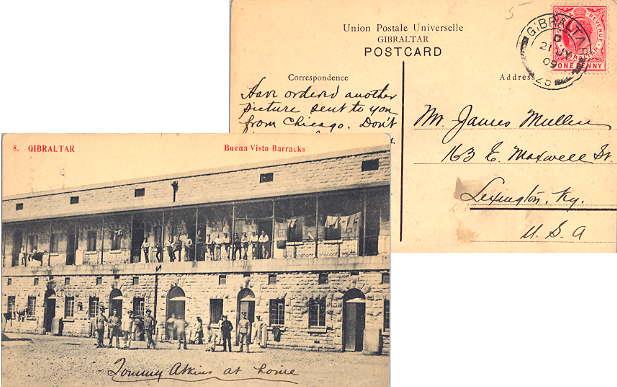 5
Union Postale Universelle
GIBRALTAR
POSTCARD
GIBRALTAR
21 JY
09
ONE PENNY
Correspondence
Address
Have ordered another
picture sent to you
from Chicago. Don't
Mr. James Mullen
163 E. Maxwell St.
Lexington, Ky.
U. S. A
8. GIBRALTAR
Buena Vista Barracks
Tommy Atkins at home